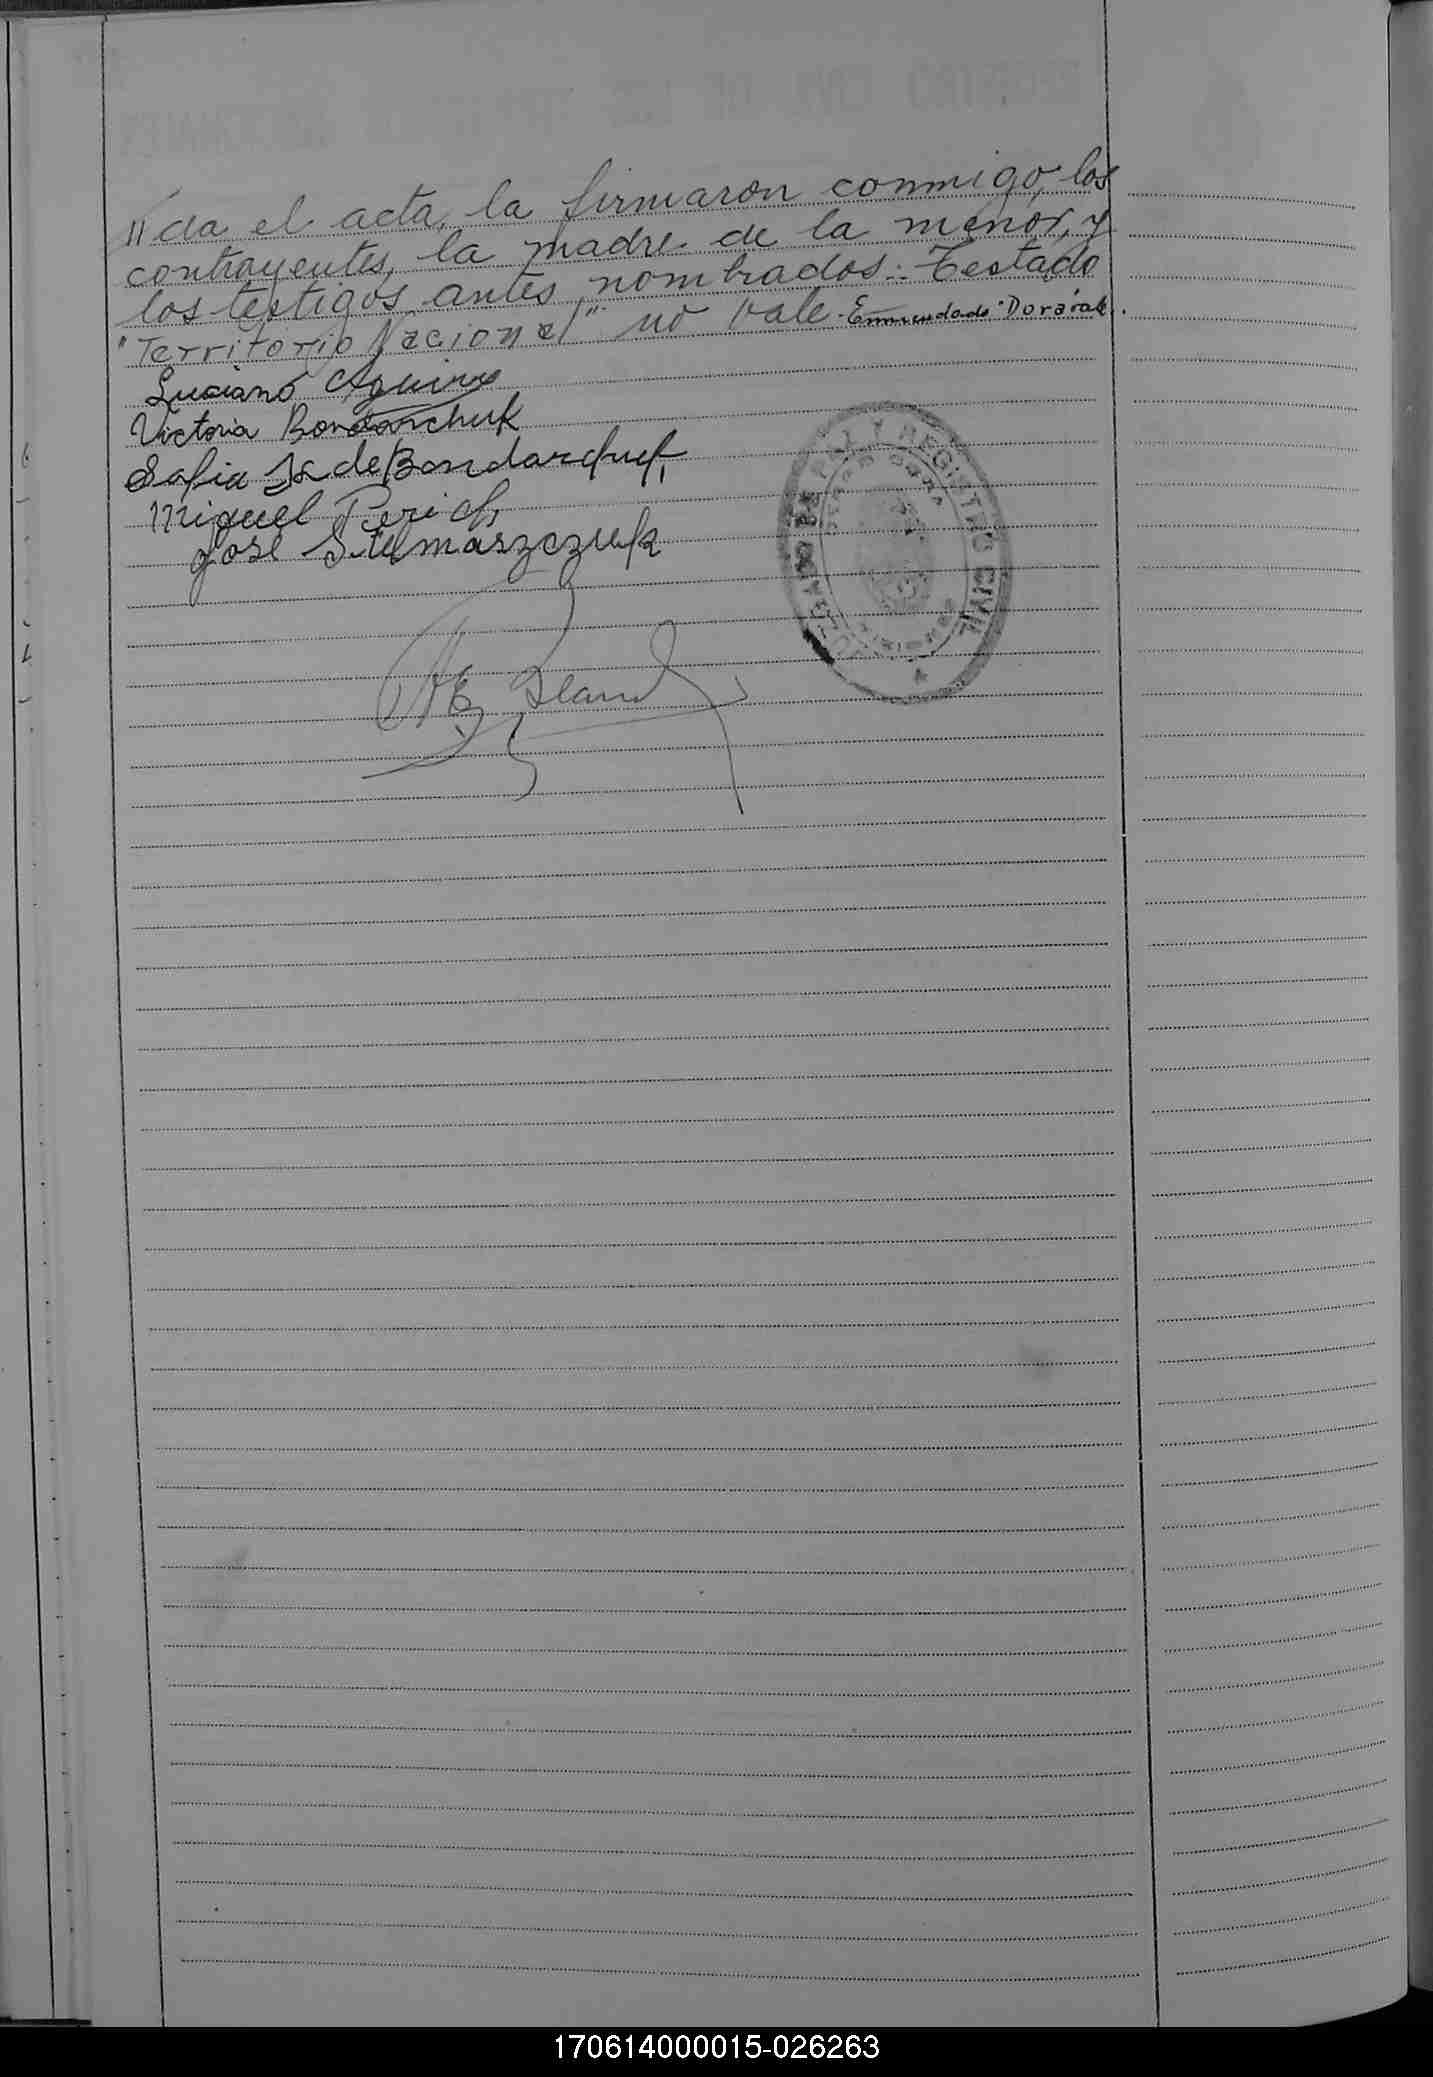 //da el acta, la firmaron conmigo, los
contrayentes, la madre de la menor, y
los testigos antes nombrados: Testado
"Territorio Nacional" no vale. Enmendado "Dora" vale.
Luciano Aquino
Victoria Bondarchuk
Miguel Perich
José Stemaszczuk
PAZ Y REGISTRO CIVIL
170614000015-026263